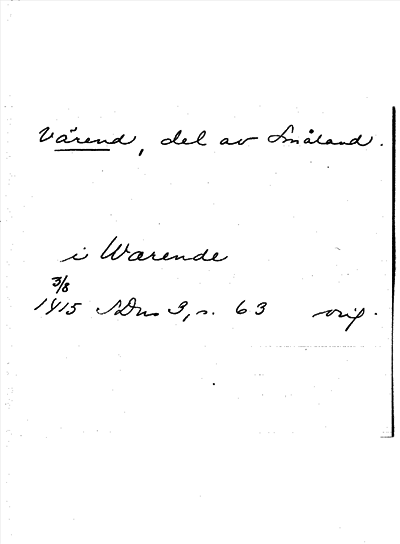 Värend, del av Småland.
i Warende
3/8
1415 SDns 3, s. 63 orig.